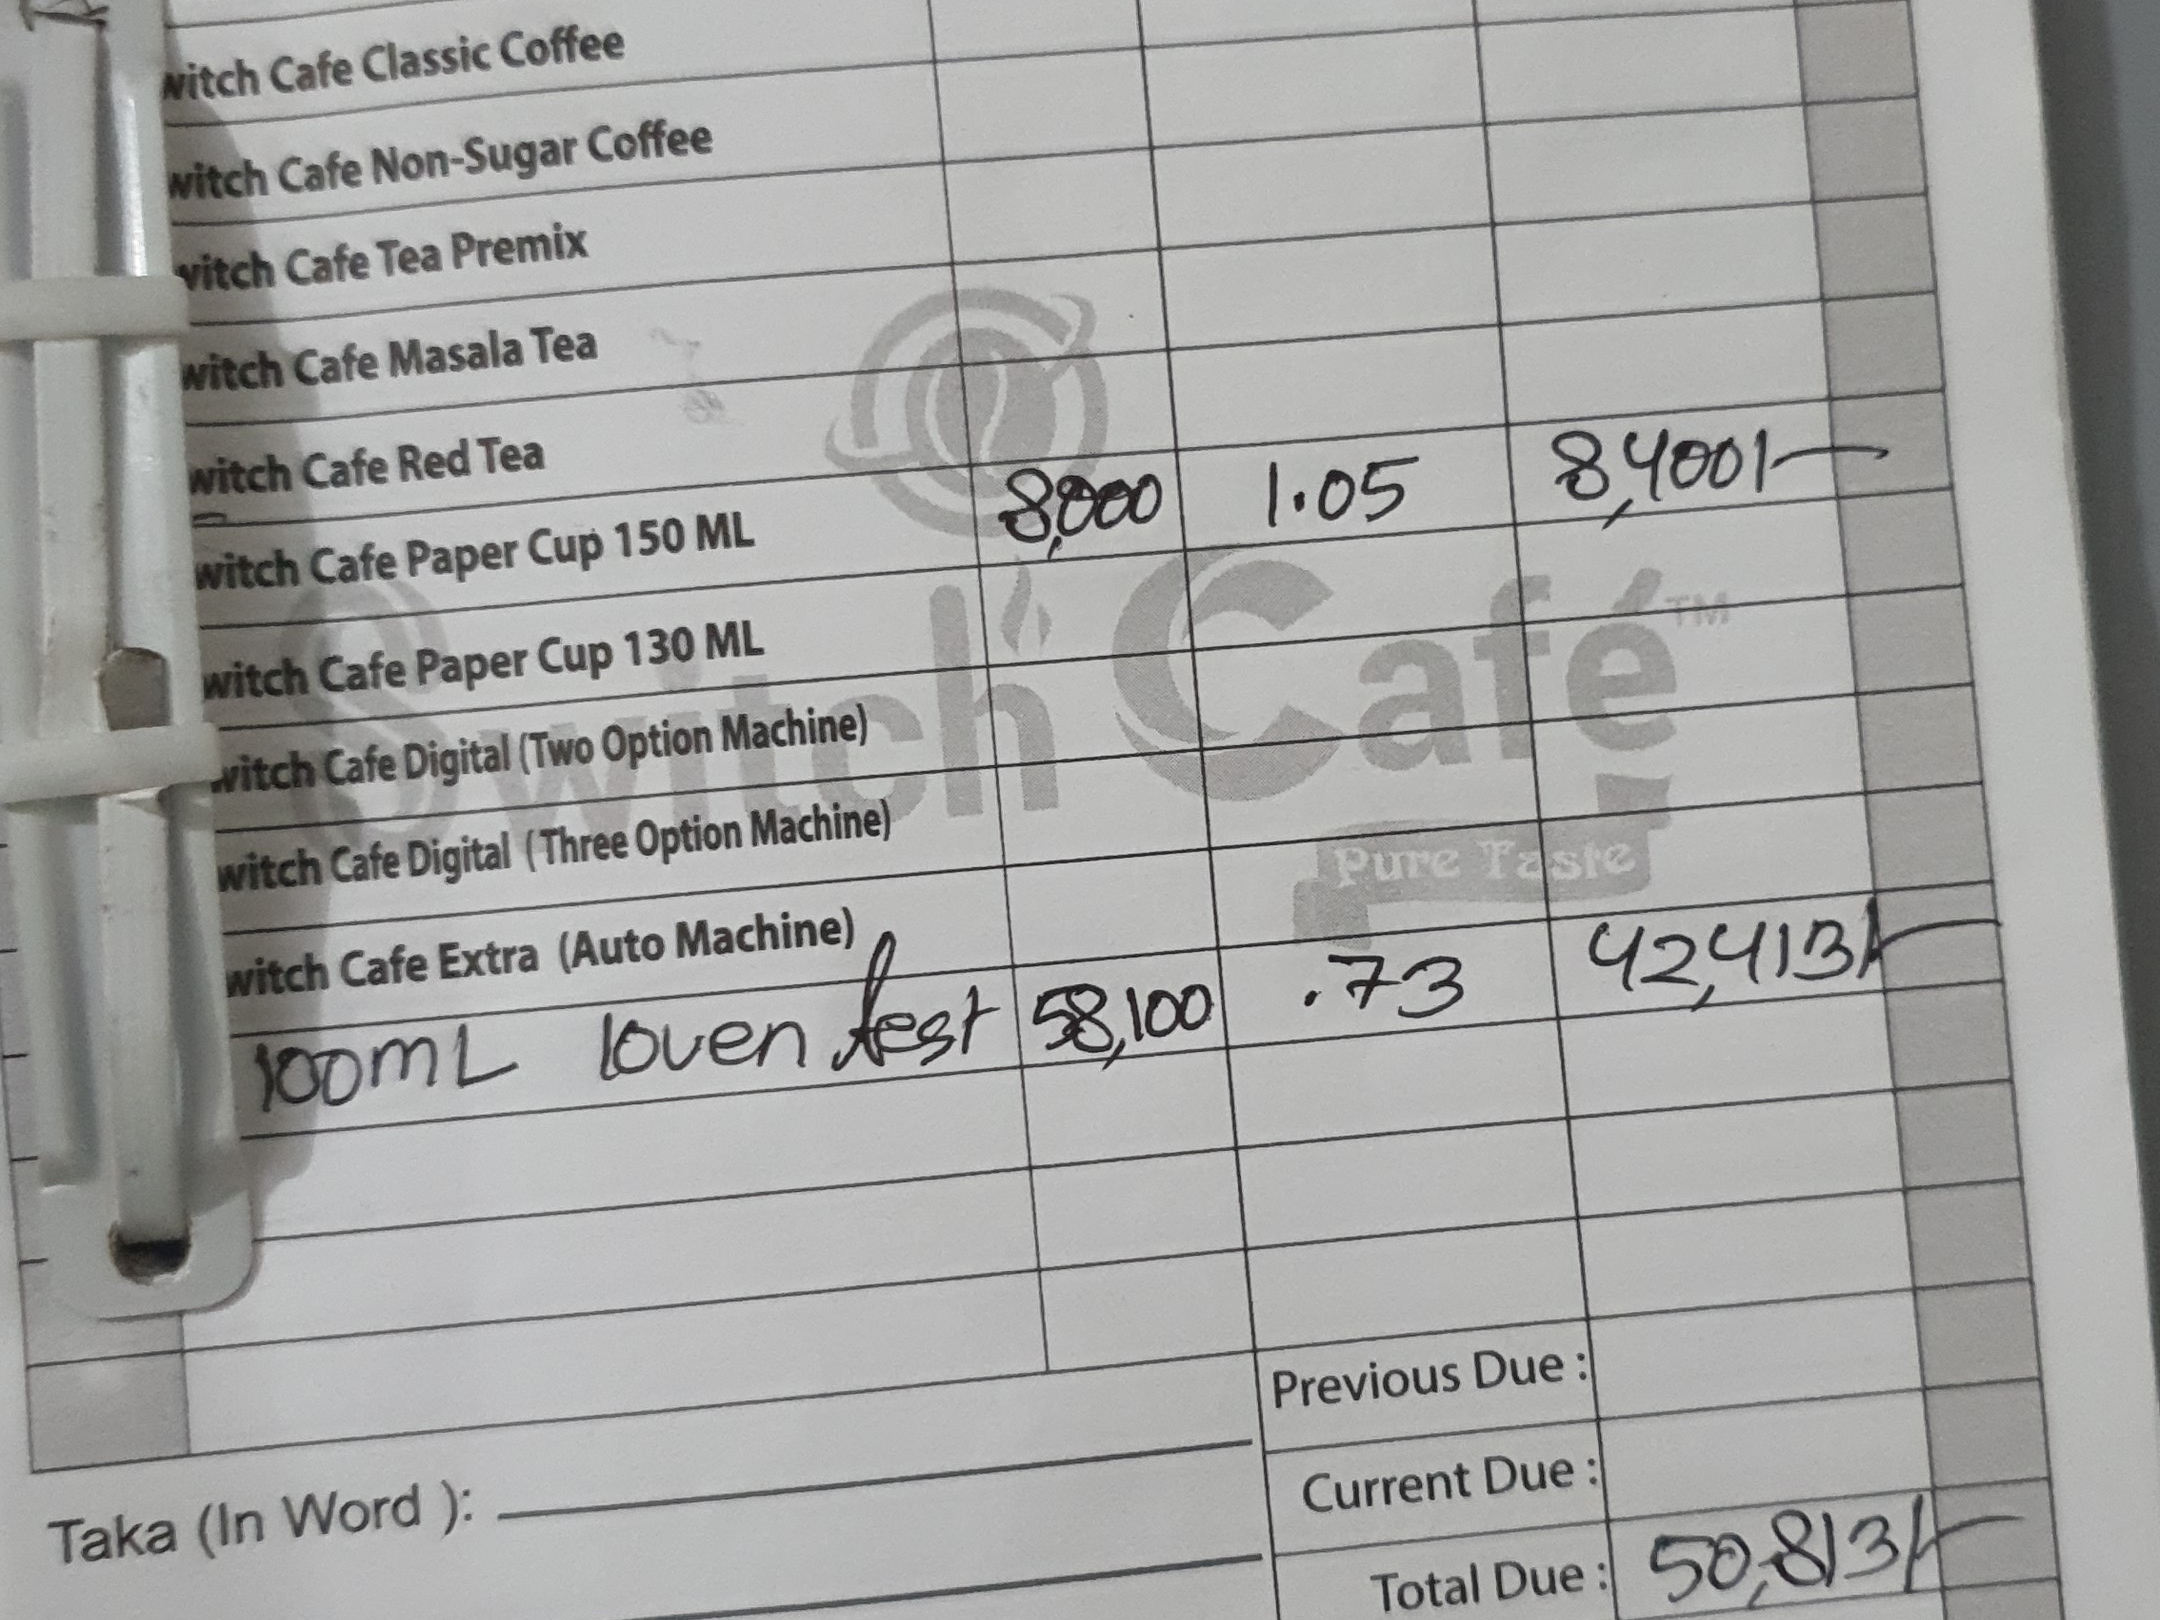 witch Cafe Classic Coffee
witch Cafe Non-Sugar Coffee
witch Cafe Tea Premix
witch Cafe Masala Tea
witch Cafe Red Tea
witch Cafe Paper Cup 150 ML 8,000 1.05 8,400/-
witch Cafe Paper Cup 130 ML
witch Cafe Digital (Two Option Machine)
witch Cafe Digital (Three Option Machine)
witch Cafe Extra (Auto Machine)
100mL loven fest 58,100 .73 42,413/-
Switch Café™
Pure Taste
Previous Due :
Current Due :
Taka (In Word ):
Total Due : 50,813/-